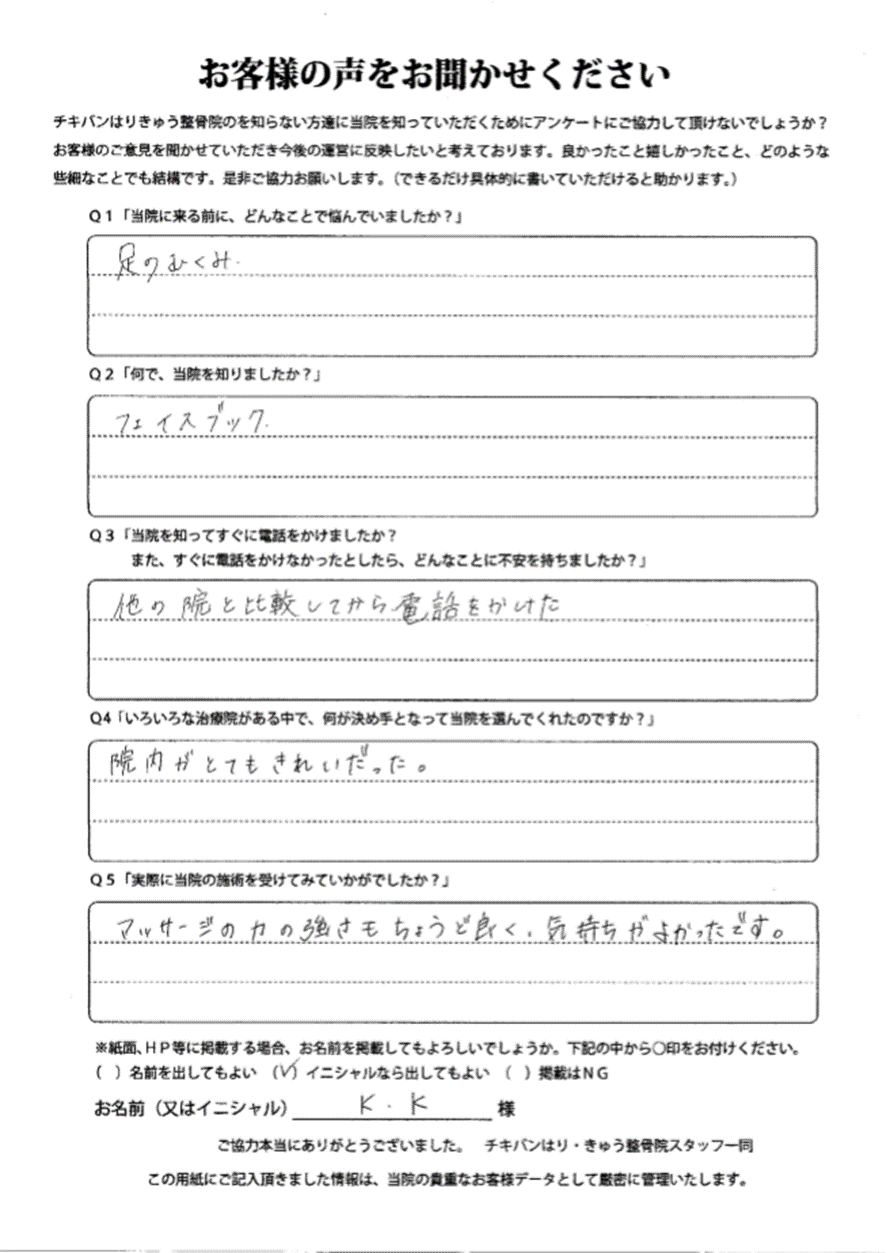 お客様の声をお聞かせください
チキバンはりきゅう整骨院のを知らない方達に当院を知っていただくためにアンケートにご協力して頂けないでしょうか？
お客様のご意見を聞かせていただき今後の運営に反映したいと考えております。良かったこと嬉しかったこと、どのような
些細なことでも結構です。是非ご協力お願いします。（できるだけ具体的に書いていただけると助かります。）
Q１「当院に来る前に、どんなことで悩んでいましたか？」
足のむくみ.
Q２「何で、当院を知りましたか？」
フェイスブック.
Q３「当院を知ってすぐに電話をかけましたか？
また、すぐに電話をかけなかったとしたら、どんなことに不安を持ちましたか？」
他の院と比較してから電話をかけた
Q4「いろいろな治療院がある中で、何が決め手となって当院を選んでくれたのですか？」
院内がとてもきれいだった。
Q５「実際に当院の施術を受けてみていかがでしたか？」
マッサージの力の強さもちょうど良く、気持ちがよかったです。
※紙面、HP等に掲載する場合、お名前を掲載してもよろしいでしょうか。下記の中から○印をお付けください。
（ ）名前を出してもよい （✓）イニシャルなら出してもよい （ ）掲載はNG
お名前（又はイニシャル） K．K 様
ご協力本当にありがとうございました。 チキバンはり・きゅう整骨院スタッフ一同
この用紙にご記入頂きました情報は、当院の貴重なお客様データとして厳密に管理いたします。